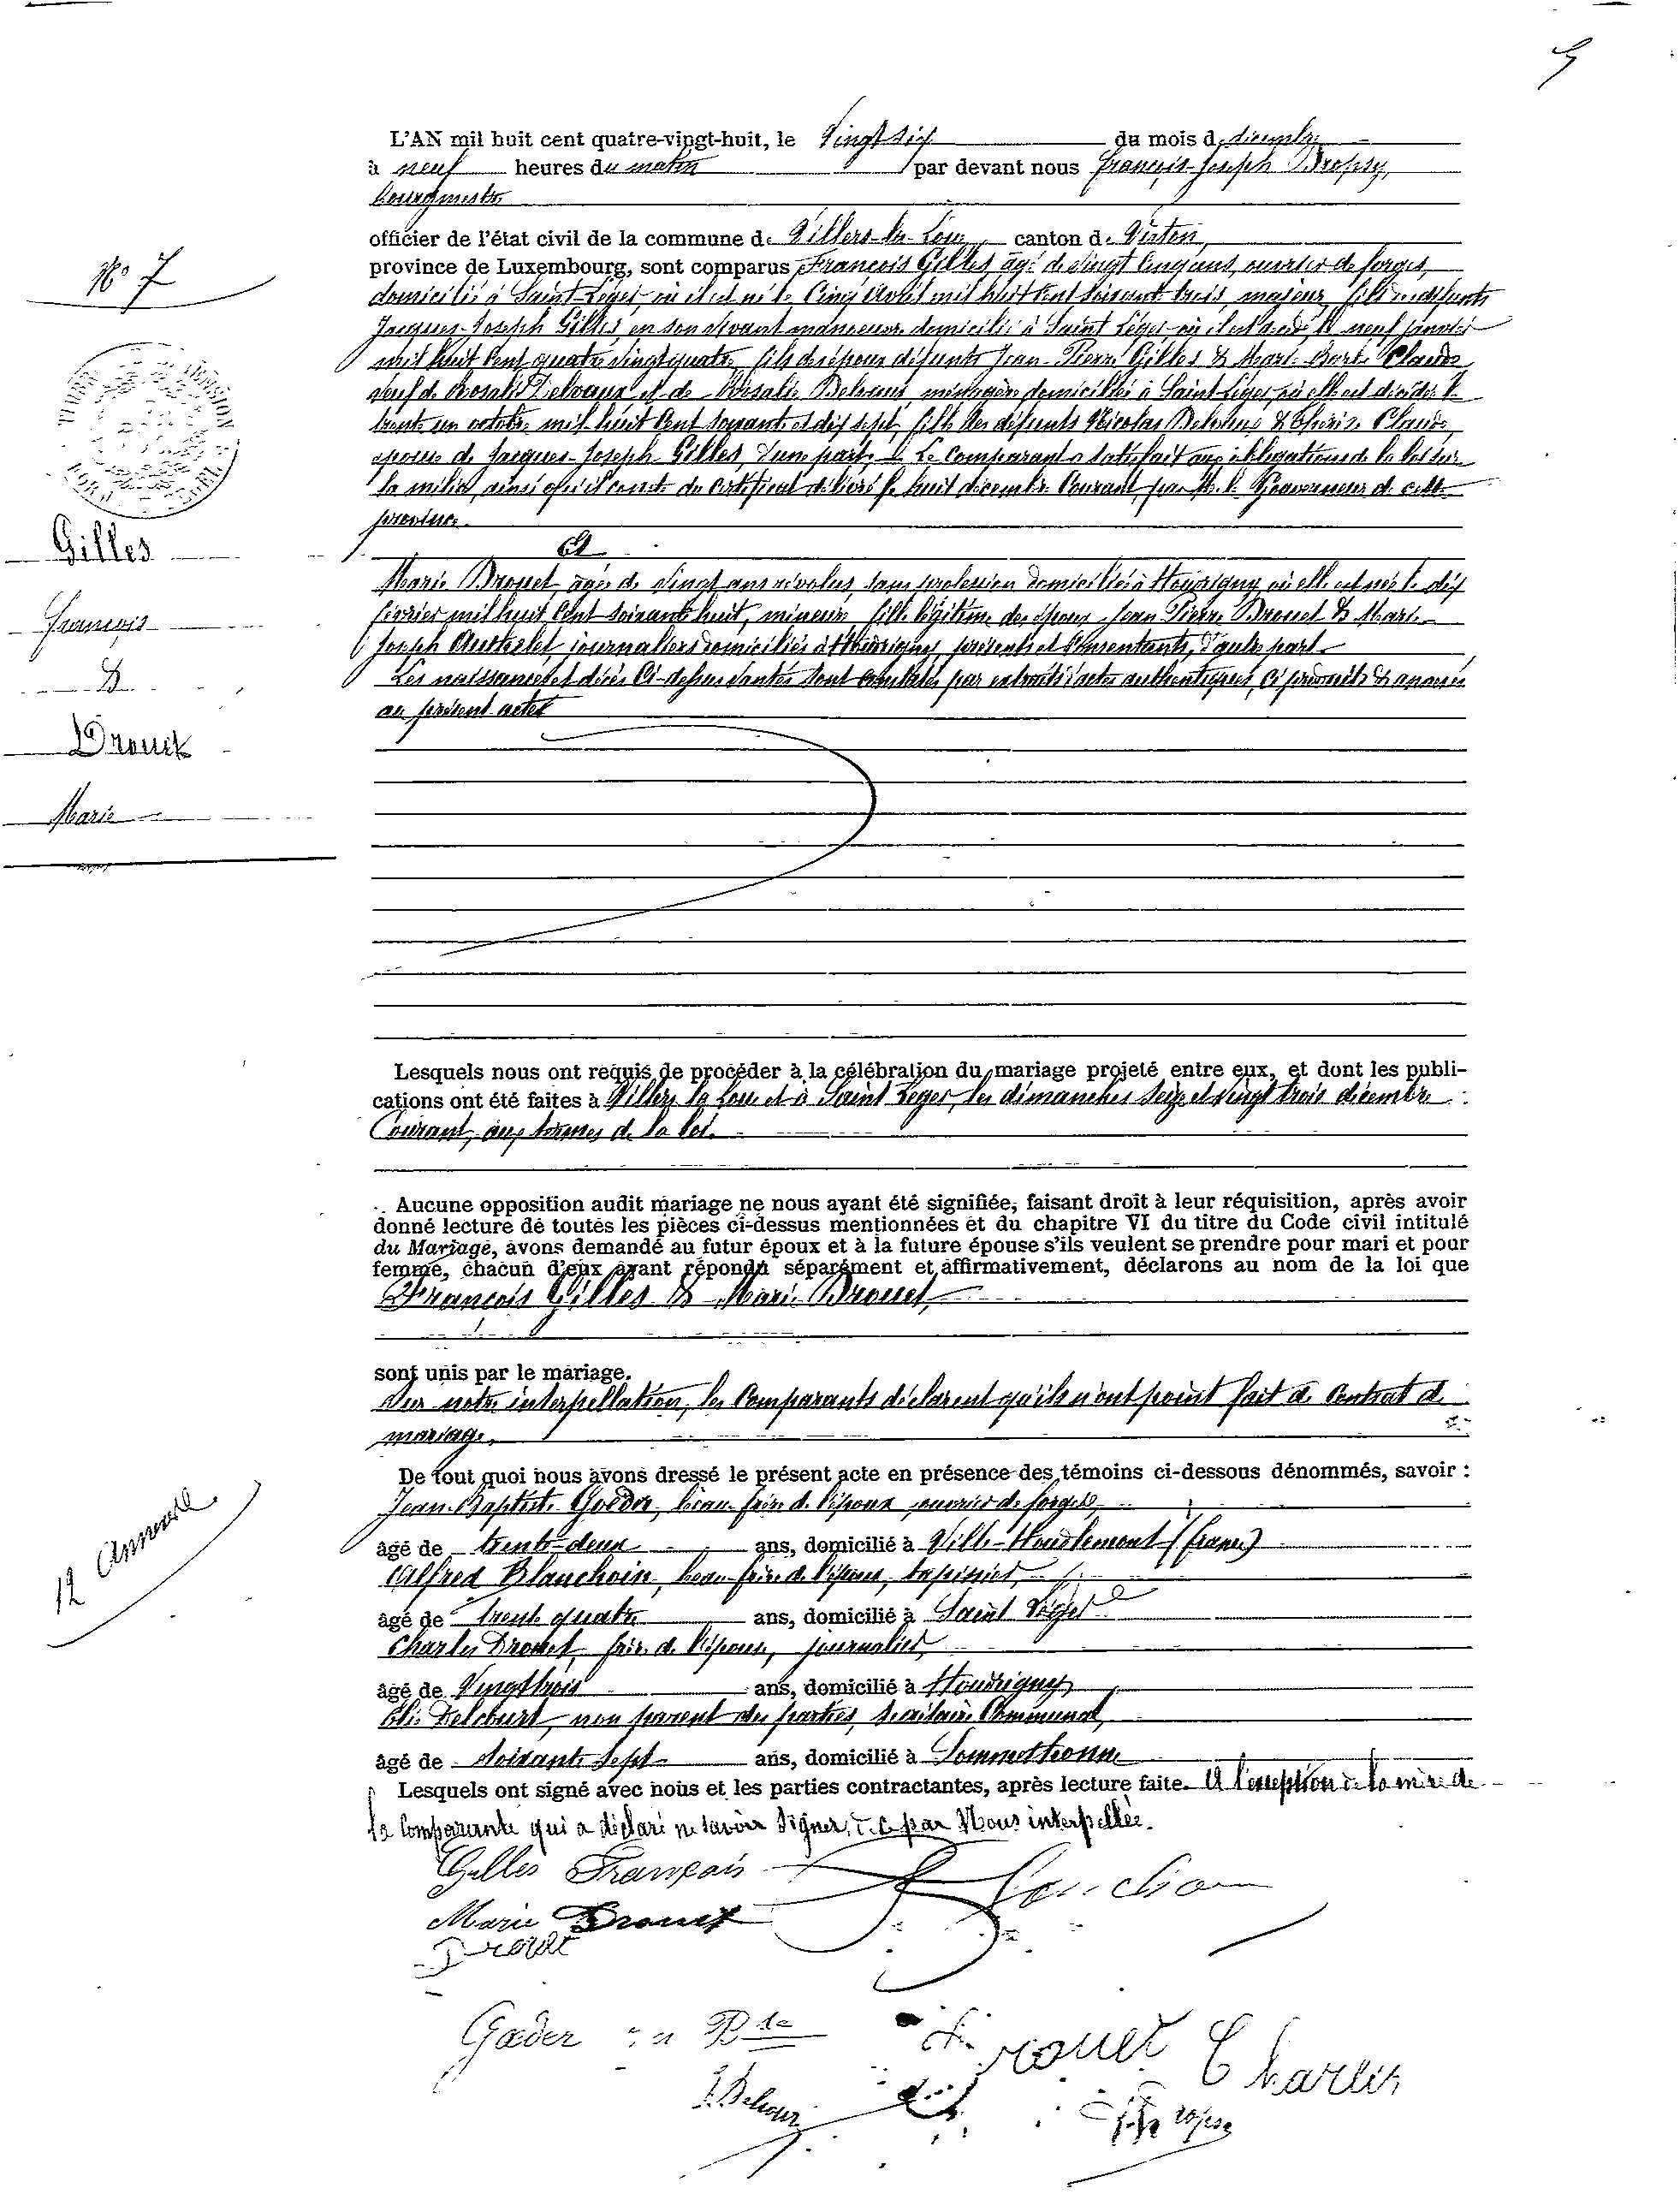 5
L'AN mil huit cent quatre-vingt-huit, le Vingt six du mois de décembre
à neuf heures du matin par devant nous François-Joseph Dropsy,
bourgmestre
officier de l'état civil de la commune de Villers-la-Loue, canton de Virton,
province de Luxembourg, sont comparus François Gilles, agé de vingt cinq ans, ouvrier de forges,
domicilié à Saint-Léger, où il est né le Cinq Avril mil huit cent soixante trois, majeur, fils de défunts
Jacques-Joseph Gilles, en son vivant manoeuvre domicilié à Saint Léger où il est décédé le neuf janvier
mil huit cent quatre vingt quatre, fils des époux défunts Jean-Pierre Gilles & Marie-Barbe Claude
veuf de Rosalie Delvaux et de Rosalie Delvaux, ménagère domiciliée à Saint-Léger, où elle est décédée le
trente un octobre mil huit cent soixante et dix sept, fille des défunts Nicolas Delvaux & Thérèse Claude,
épouse de Jacques-Joseph Gilles, d'une part. Le Comparant a satisfait aux obligations de la loi sur
la milice, ainsi qu'il conste du certificat délivré le huit décembre Courant, par M. le Gouverneur de cette
province.
Et
Marie Drouet, agée de vingt ans révolus, sans profession domiciliée à Houdrigny, où elle est née le dix
février mil huit cent soixante huit, mineure, fille légitime des époux Jean Pierre Drouet & Marie-
Joseph journaliers domiciliés à Houdrigny, présents et Consentants, d'autre part.
Les naissances et décès Ci-dessus vantés sont constatés par extraits d'actes authentiques, Ci produits & annexés
au présent acte
N° 7
Gilles
François
&
Drouet
Marie
Lesquels nous ont requis de procéder à la célébration du mariage projeté entre eux, et dont les publi-
cations ont été faites à Villers la Loue et à Saint Léger, les dimanches Seize et vingt trois décembre
Courant, aux termes de la loi.
Aucune opposition audit mariage ne nous ayant été signifiée, faisant droit à leur réquisition, après avoir
donné lecture de toutes les pièces ci-dessus mentionnées et du chapitre VI du titre du Code civil intitulé
du Mariage, avons demandé au futur époux et à la future épouse s'ils veulent se prendre pour mari et pour
femme, chacun d'eux ayant répondu séparément et affirmativement, déclarons au nom de la loi que
François Gilles & Marie Drouet,
sont unis par le mariage.
Sur notre interpellation, les Comparants déclarent qu'ils n'ont point fait de Contrat de
mariage.
De tout quoi nous avons dressé le présent acte en présence des témoins ci-dessous dénommés, savoir :
Jean-Baptiste Goeder, beau-frère de l'époux, ouvrier de forges,
âgé de trente-deux ans, domicilié à Ville-Houdlemont (France)
Alfred Blanchoin, beau frère de l'époux, tapissier,
âgé de Trente quatre ans, domicilié à Saint Léger
Charles Drouet, frère de l'épouse, journalier,
âgé de Vingt trois ans, domicilié à Houdrigny,
Delcourt, non parent des parties, Secrétaire Communal,
âgé de Soixante Sept ans, domicilié à Sommethonne
Lesquels ont signé avec nous et les parties contractantes, après lecture faite. A l'exception de la mère de
la Comparante qui a déclaré ne savoir Signer, de ce par Nous interpellée.
12 Annexes
Gilles François
Marie Drouet
Drouet
Goeder Bte
Drouet Charles
Dropsy